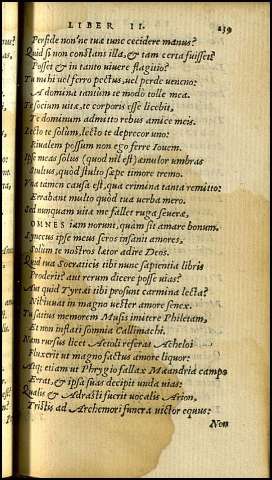 LIBER II. 239
Perfide non'ne tuæ tunc cecidere manus?
Quid si non constans illa, & tam certa fuisset?
Posset & in tanto uiuere flagitio?
Tu mihi uel ferro pectus, uel perde ueneno:
A domina tantum te modo tolle mea.
Te socium uitæ, te corporis esse licebit,
Te dominum admitto rebus amice meis.
Lecto te solum, lecto te deprecor uno:
Riualem possum non ego ferre Iouem.
Ipse meas solus (quod nil est) æmulor umbras
Stultus, quòd stulto sæpe timore tremo.
Vna tamen causa est, qua crimina tanta remitto:
Errabant multo quòd tua uerba mero.
Sed nunquam uitæ me fallet ruga seueræ,
OMNES iam norunt, quàm sit amare bonum.
Lynceus ipse meus seros insanit amores,
Solum te nostros lætor adire Deos.
Quid tua Socraticis tibi nunc sapientia libris
Proderit? aut rerum dicere posse uias?
Aut quid Tyrtæi tibi prosunt carmina lecta?
Nil iuuat in magno uester amore senex.
Tu satius memorem Musis imitere Philetam,
Et non inflati somnia Callimachi.
Nam rursus licet Aetoli referas Acheloi
Fluxerit ut magno factus amore liquor:
Atq; etiam ut Phrygio fallax Mæandria campo
Errat, & ipsa suas decipit unda uias:
Qualis & Adrasti fuerit uocalis Arion,
Tristis ad Archemori funera uictor equus:
Non